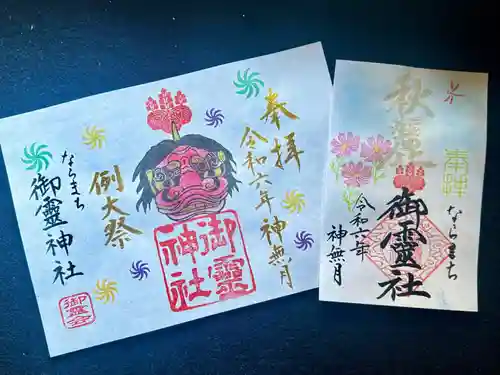 奉拝
令和六年神無月
例大祭
ならまち
御霊神社
御靈
神社
奉拝
ならまち
御靈社
令和六年
神無月